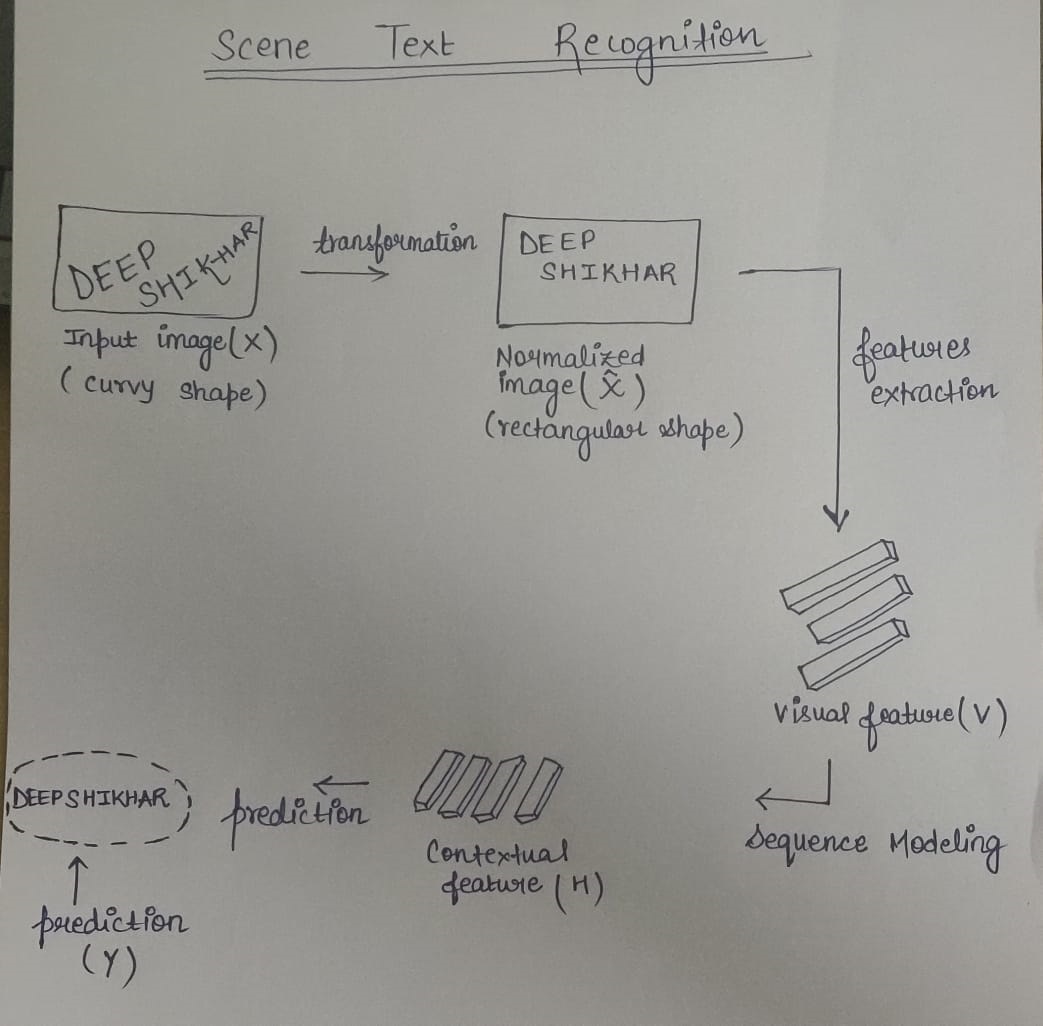 Scene Text Recognition
DEEP
SHIKHAR
Input image(X)
(curvy shape)
transformation
DEEP
SHIKHAR
Normalized
image(X̂)
(rectangular shape)
features
extraction
visual feature(V)
Sequence Modeling
Contextual
feature(H)
prediction
DEEPSHIKHAR
prediction
(Y)